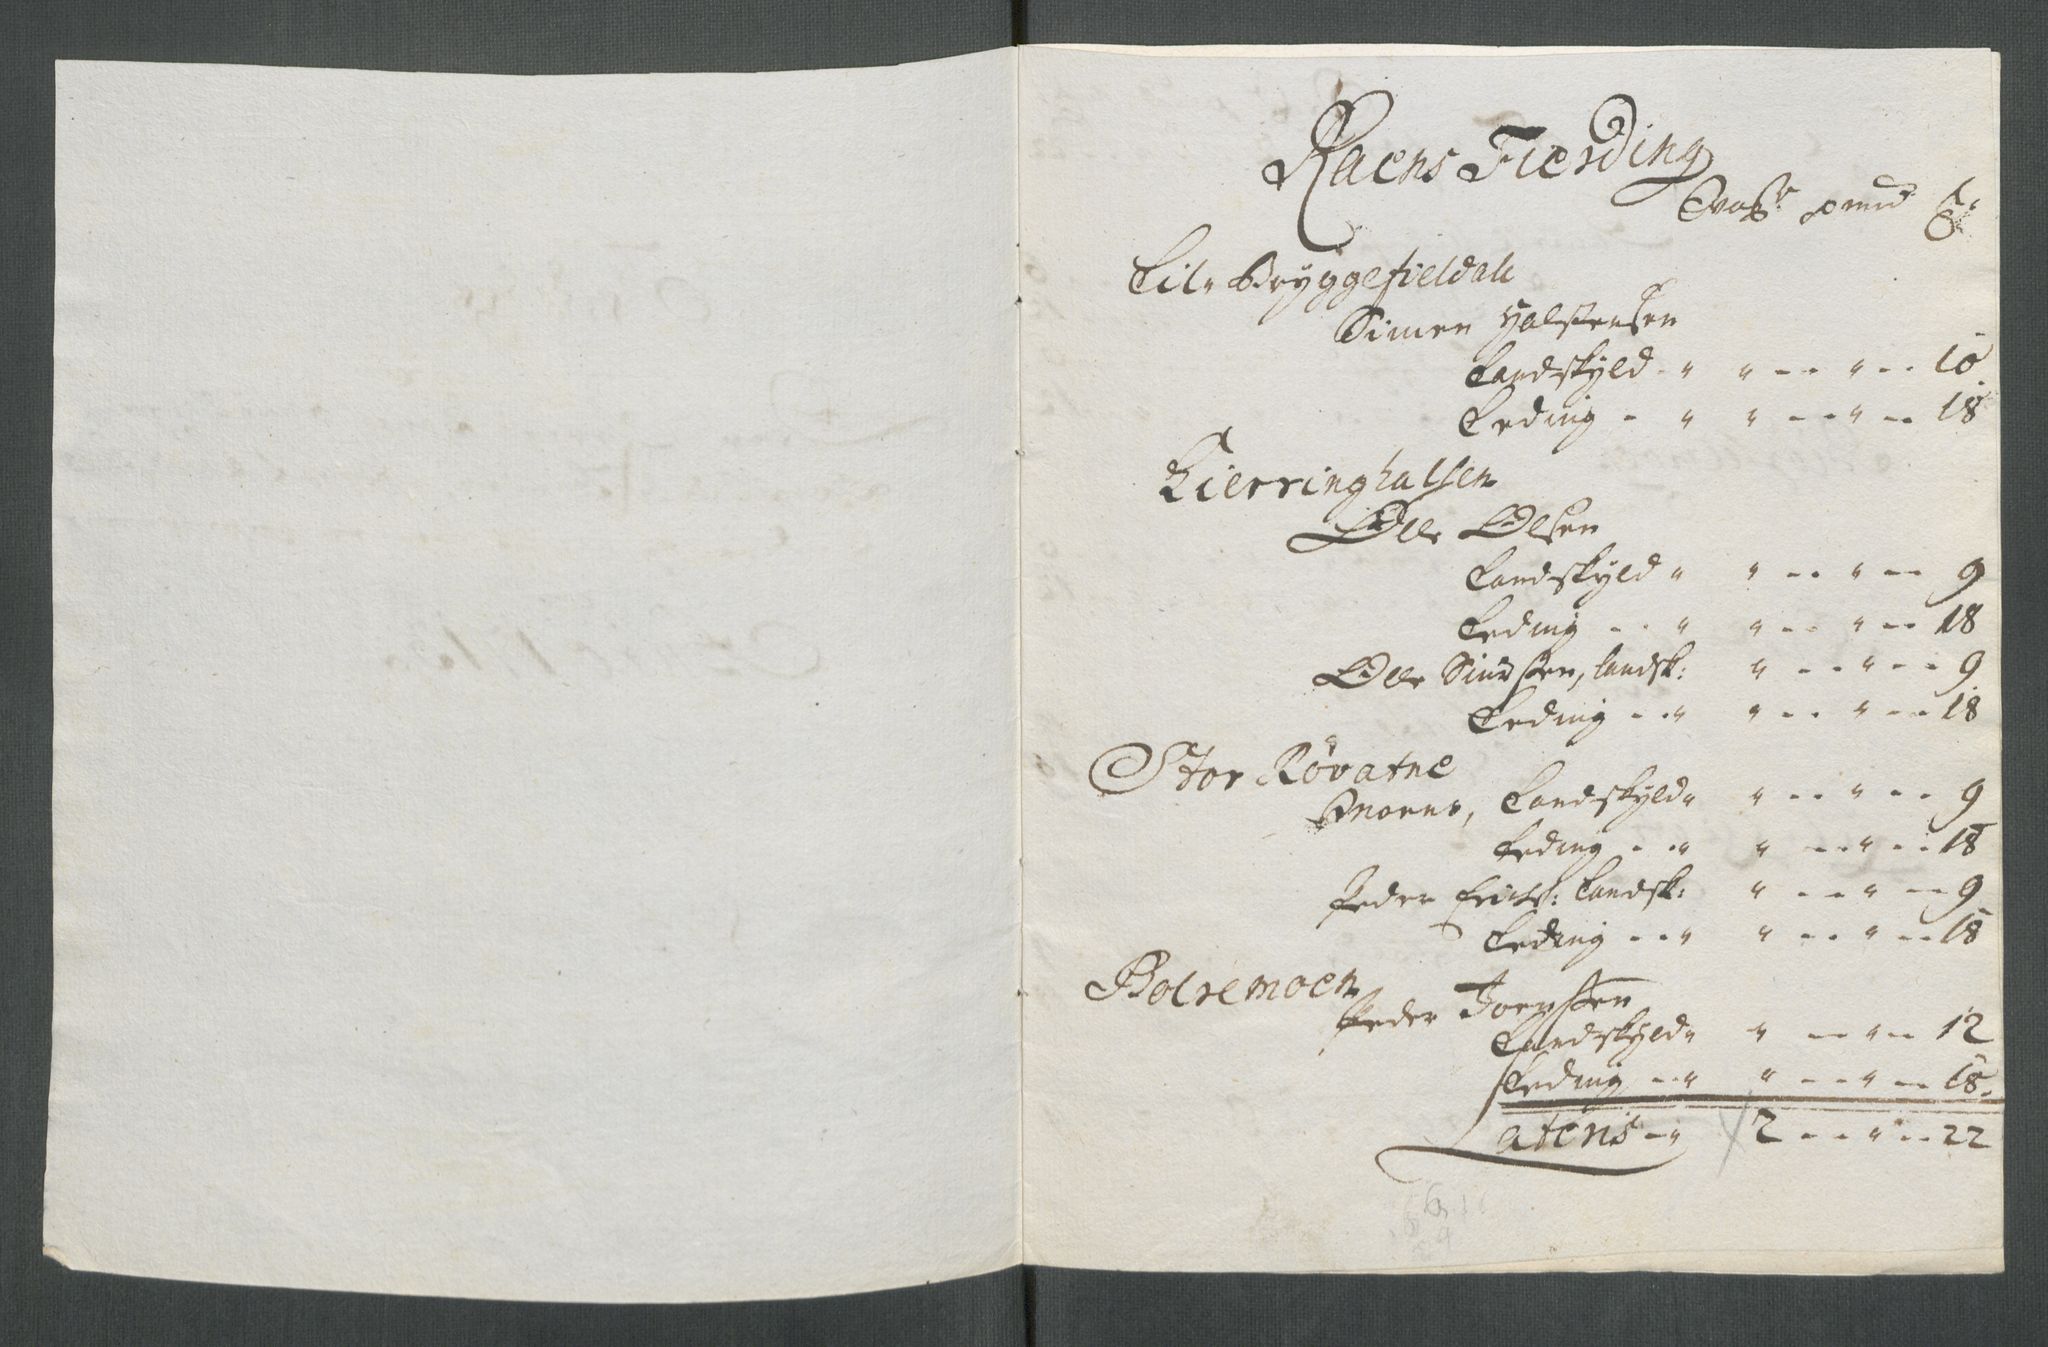 Raens Fierding
Lil: Bryggefieldall
Simen Halstensen
Landskyld - " " - - " - - 10
Leding - " " - - " - - 18
Kierringhalsen
Olle Olsen
Landskyld " " - - " - - 9
Leding - - " " - - " - - 18
Olle Siursen, landsk: " - - " - - 9
Leding - - " " - - " - - 18
Stor Røvatne
Landskyld " " - - " - - 9
Leding - - " " - - " - - 18
Peder Erichs: Landsk: " - - " - - 9
Leding - - " " - - " - - 18
Bolremoen
Peder Joensen
Landskyld " " - - " - - 12
Leding - - " " - - " - - 18.
Lateris - " 2 - - " - - 22